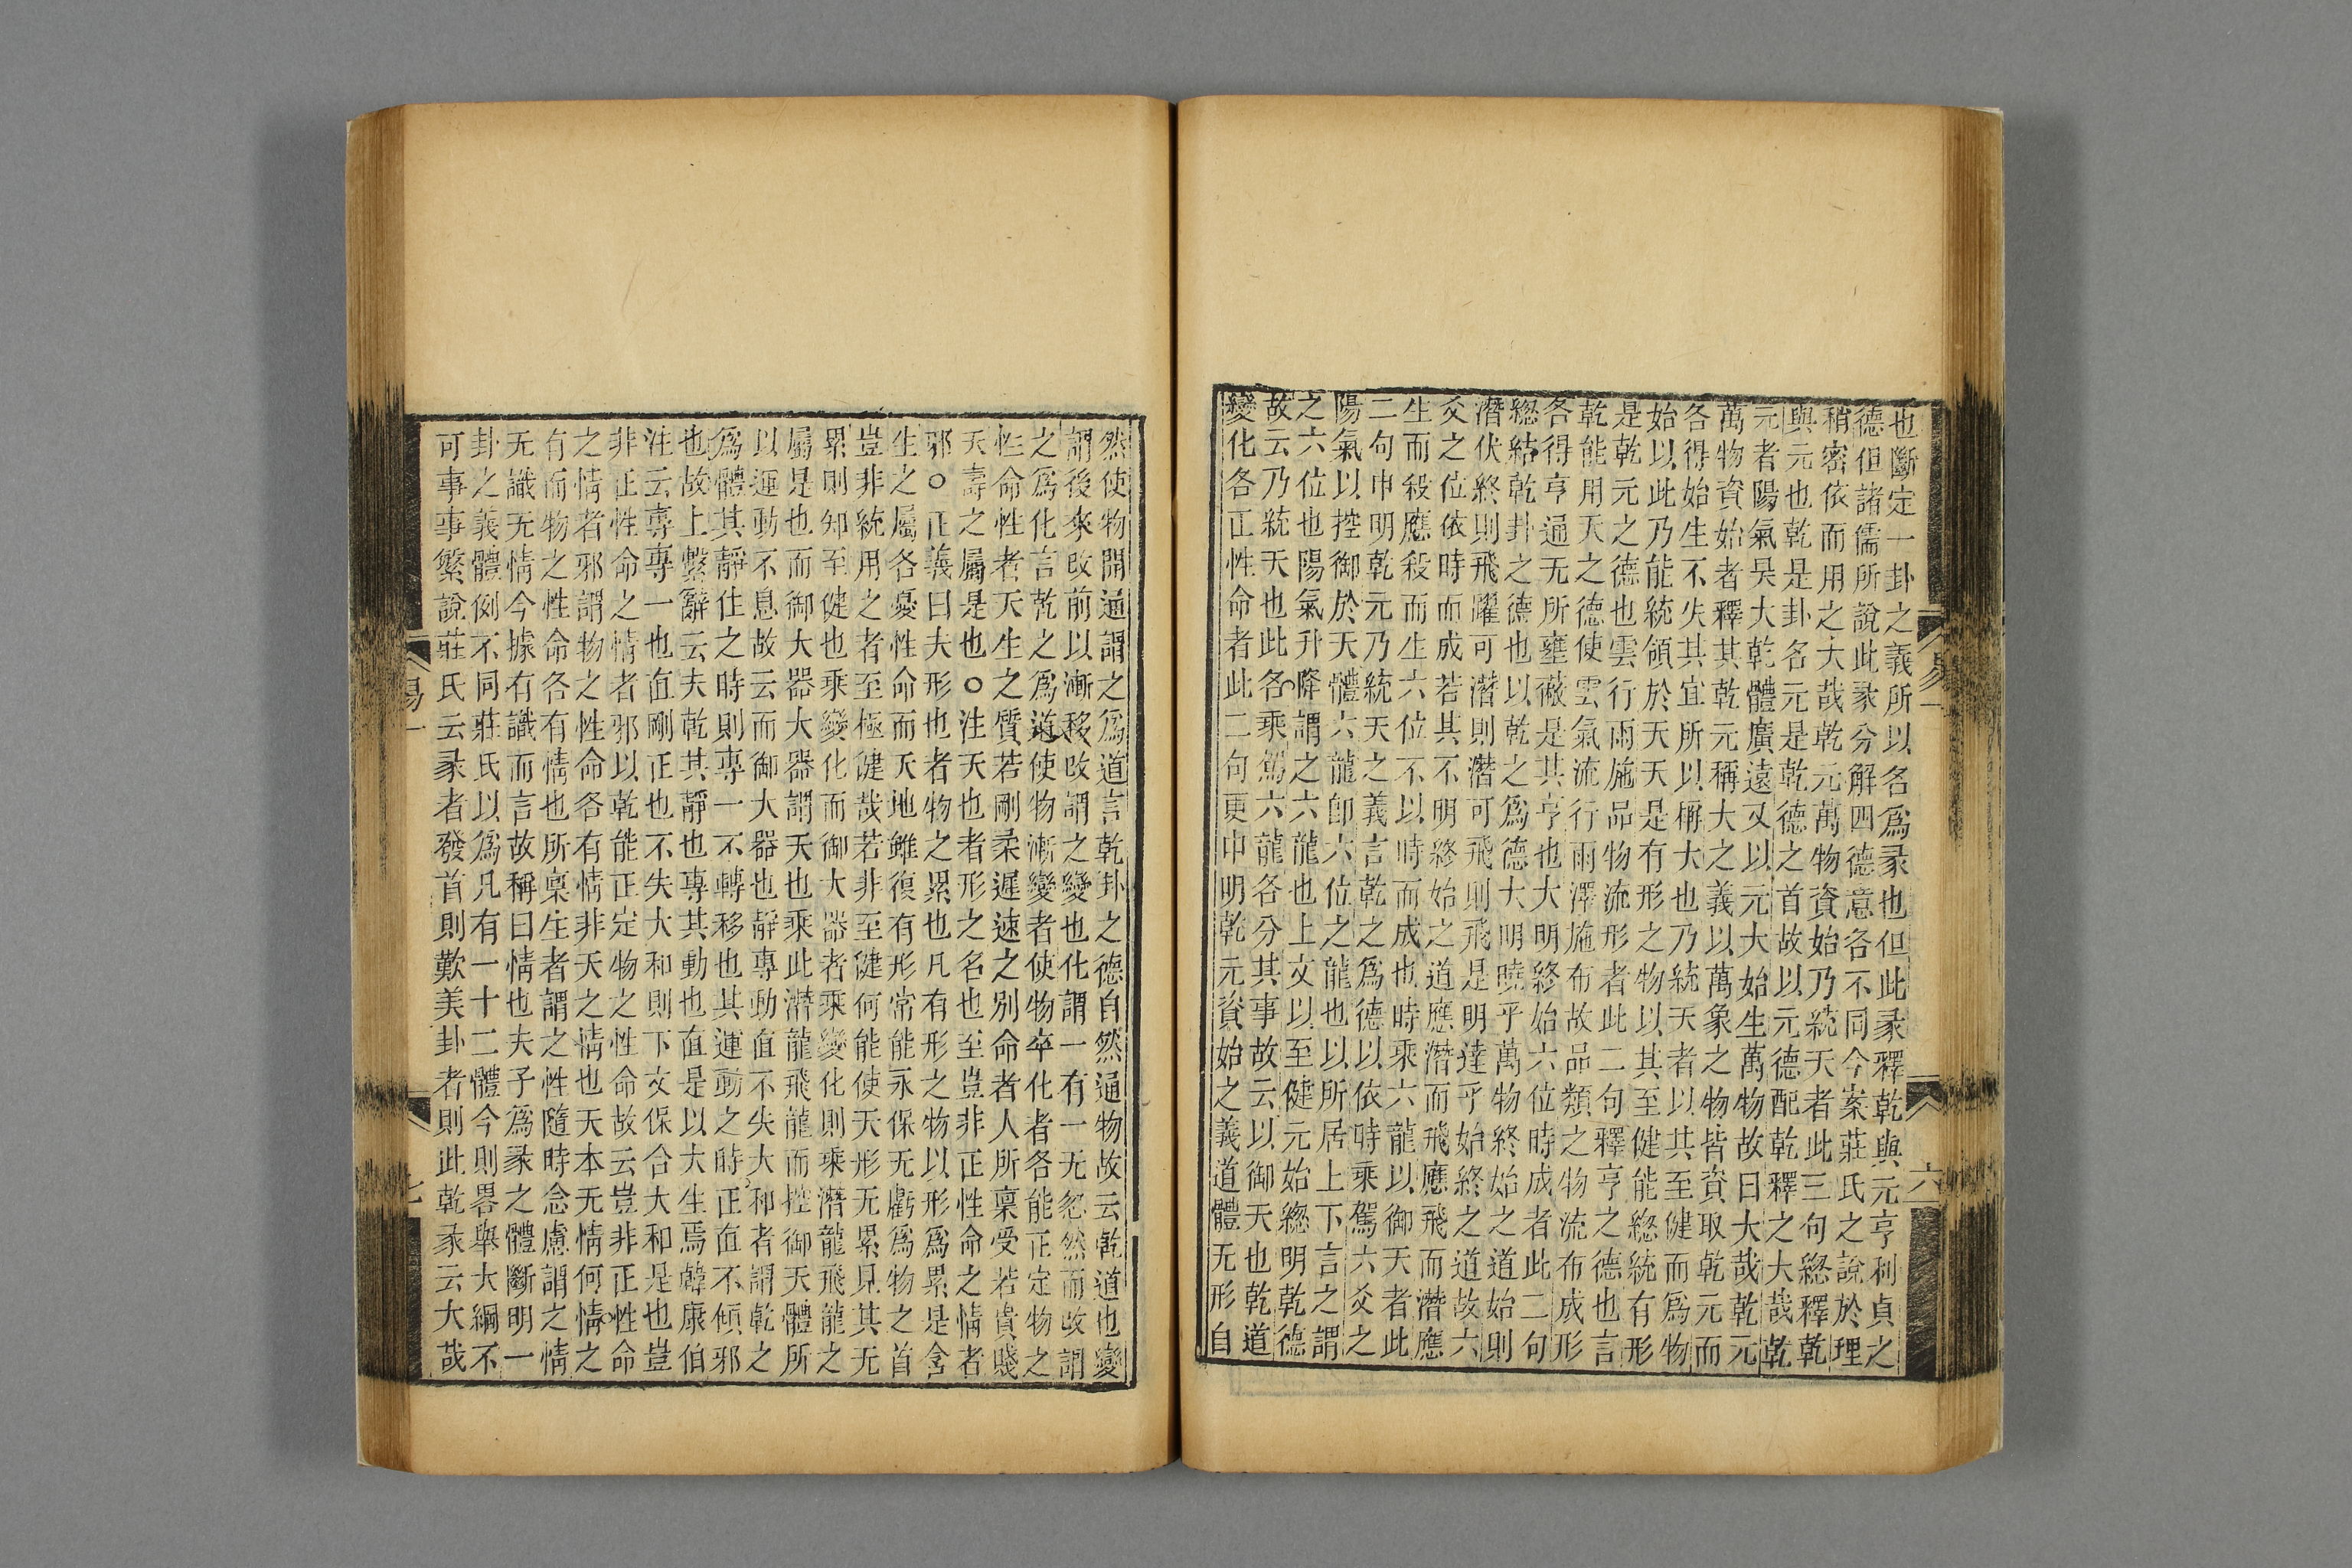 也斷定一卦之義所以名爲彖也但此彖釋乾與元亨利貞之
德但諸儒所說此彖分解四德意各不同今案莊氏之說於理
稍密依而用之大哉乾元萬物資始乃統天者此三句緫釋乾
與元也乾是卦名元是乾德之首故以元德配乾釋之大哉乾
元者陽氣昊大乾體廣遠又以元大始生萬物故曰大哉乾元
萬物資始者釋其乾元稱大之義以萬象之物皆資取乾元而
各得始生不失其宜所以稱大也乃統天者以其至健而爲物
始以此乃能統領於天天是有形之物以其至健能緫統有形
是乾元之德也雲行雨施品物流形者此二句釋亨之德也言
乾能用天之德使雲氣流行雨澤施布故品類之物流布成形
各得亨通无所壅蔽是其亨也大明終始六位時成者此二句
緫結乾卦之德也以乾之爲德大明曉乎萬物終始之道始則
潛伏終則飛躍可潛則潛可飛則飛是明達乎始終之道故六
爻之位依時而成若其不明終始之道應潛而飛應飛而潛應
生而殺應殺而生六位不以時而成也時乘六龍以御天者此
二句申明乾元乃統天之義言乾之爲德以依時乘駕六爻之
陽氣以控御於天體六龍卽六位之龍也以所居上下言之謂
之六位也陽氣升降謂之六龍也上文以至健元始緫明乾德
故云乃統天也此各乘駕六龍各分其事故云以御天也乾道
變化各正性命者此二句更申明乾元資始之義道體无形自
易一
六
然使物開通謂之爲道言乾卦之德自然通物故云乾道也變
謂後來改前以漸移改謂之變也化謂一有一无忽然而改謂
之爲化言乾之爲道使物漸變者使物卒化者各能正定物之
性命性者天生之質若剛柔遲速之別命者人所稟受若貴賤
夭壽之屬是也○注天也者形之名也至豈非正性命之情者
邪○正義曰夫形也者物之累也凡有形之物以形爲累是含
生之屬各憂性命而天地雖復有形常能永保无虧爲物之首
豈非統用之者至極健哉若非至健何能使天形无累見其无
累則知至健也乘變化而御大器者乘變化則乘潛龍飛龍之
屬是也而御大器大器謂天也乘此潛龍飛龍而控御天體所
以運動不息故云而御大器也靜專動直不失大和者謂乾之
爲體其靜住之時則專一不轉移也其運動之時正直不傾邪
也故上繫辭云夫乾其靜也專其動也直是以大生焉韓康伯
注云專專一也直剛正也不失大和則下文保合大和是也豈
非正性命之情者邪以乾能正定物之性命故云豈非正性命
之情者邪謂物之性命各有情非天之情也天本无情何情之
有而物之性命各有情也所稟生者謂之性隨時念慮謂之情
无識无情今據有識而言故稱曰情也夫子爲彖之體斷明一
卦之義體例不同莊氏以爲凡有一十二體今則畧舉大綱不
可事事繁說莊氏云彖者發首則歎美卦者則此乾彖云大哉
易一
七